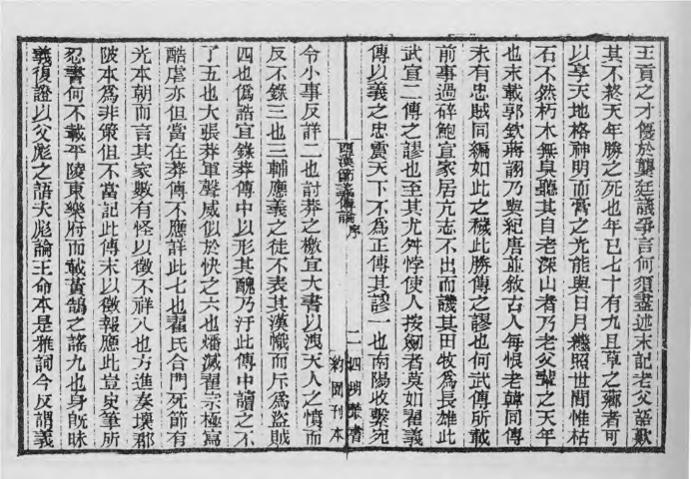 王貢之才儗於龔廷議爭言何須盡述末記老父語歎
其不終天年勝之死也年巳七十有九且草之鄉者可
以享天地格神明而膏之光能與日月繼照世間惟枯
石不然朽木無臭聽其自老深山者乃老父輩之天年
也末載郭欽蔣詡乃與紀唐並敘古人每恨老韓同傳
未有忠賊同編如此之穢此勝傳之謬也何武傳所載
前事過碎鮑宣家居亢志不出而譏其田牧爲長雄此
武宣二傳之謬也至其尤舛悖使人按劒者莫如翟義
傳以義之忠震天下不爲正傳其謬一也南陽收繫宛
西漢節義傳論序
二
四明叢書
約園刊本
令小事反詳二也討莽之檄宜大書以洩天人之憤而
反不錄三也三輔應義之徒不表其漢幟而斥爲盜賊
四也僞誥宜錄莽傳中以形其醜乃汙此傳中讀之不
了五也大張莽軍聲威似於快之六也燔滅翟宗極寫
酷虐亦但當在莽傳不應詳此七也翟氏合門死節有
光本朝而言其家數有怪以徵不祥八也方進奏壞郡
陂本爲非策但不當記此傳末以徵報應此豈史筆所
忍書何不載平陵東樂府而載黃鵠之謠九也身旣昧
義復證以父彪之語夫彪論王命本是雅詞今反謂義